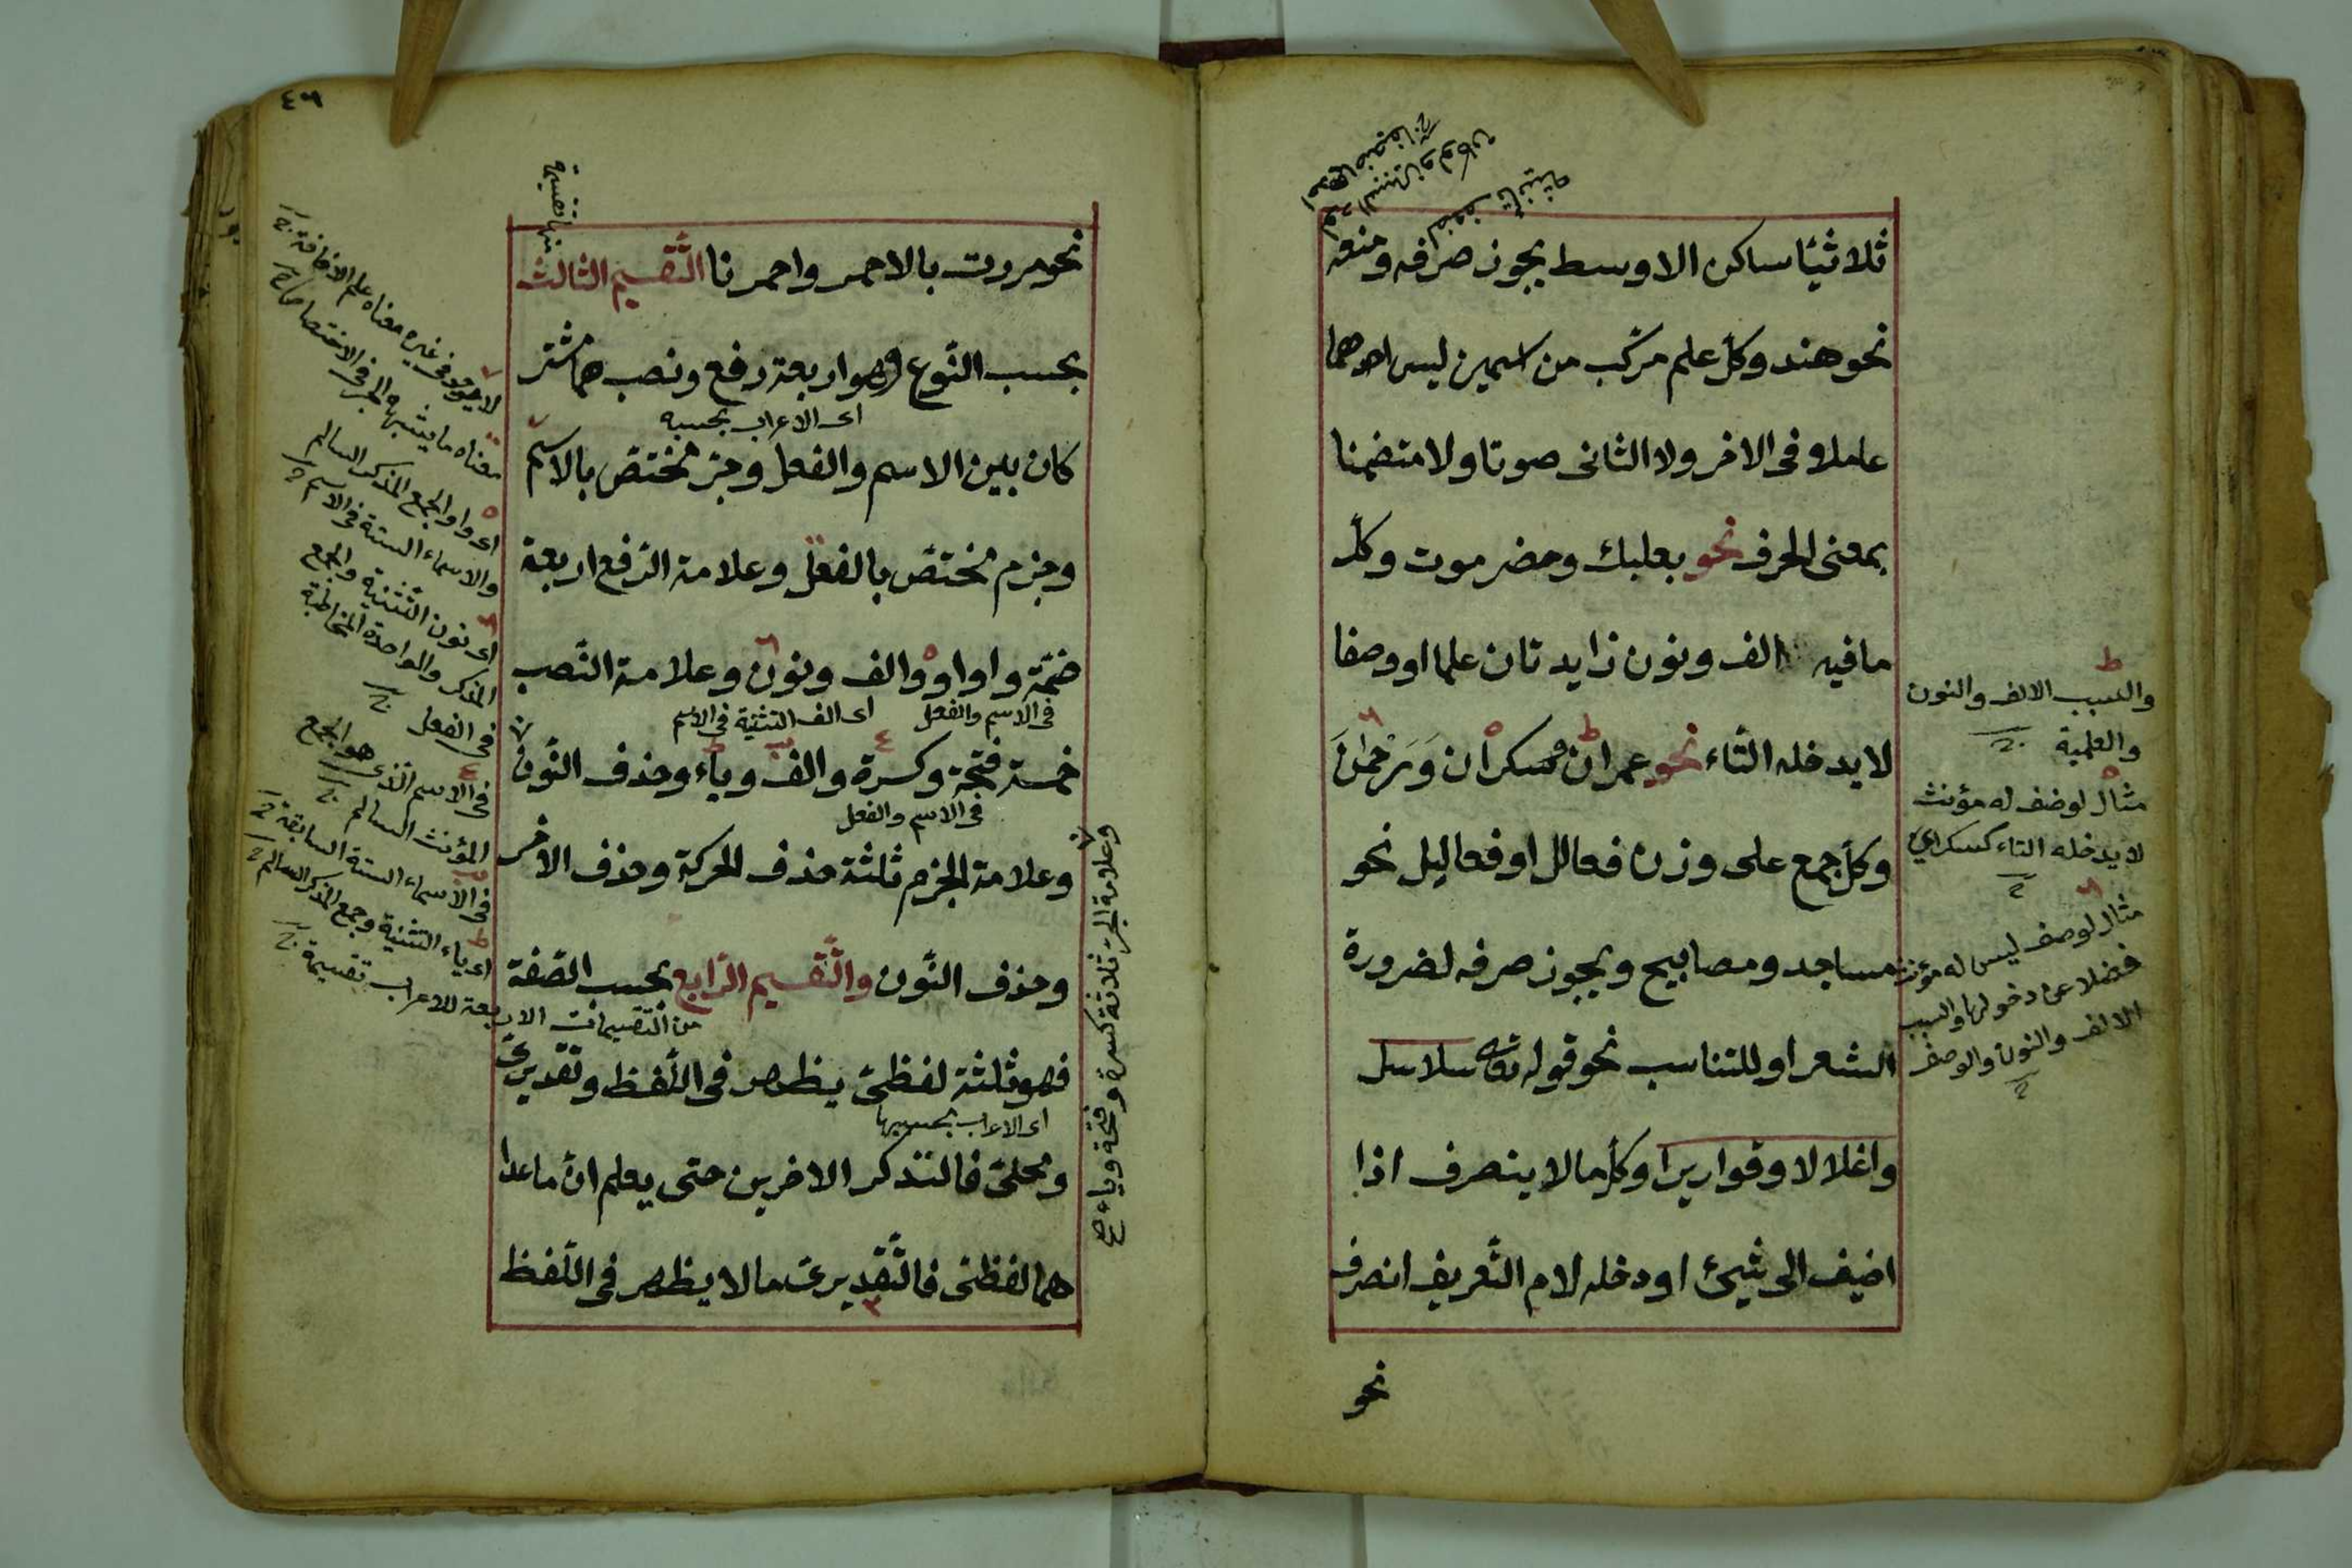 ثلاثيّا ساكن الاوسط يجوز صرفه ومنعه
نحو هند وكلّ علم مركّب من اسمين ليس احدهما
عاملا فى الاخر ولا الثانى صوتا ولا متضمنا
بمعنى الحرف نحو بعلبك وحضرموت وكلّ
ما فيه الف ونون زايدتان علما او وصفا
لا يدخله التّاء نحو عمران وسكران ورحمن
وكلّ جمع على وزن فعالل او فعاليل نحو
مساجد ومصابيح ويجوز صرفه لضرورة
الشعر او للتناسب نحو قوله تعالى سلاسل
واغلالا وقواريرا وكلّ ما لا ينصرف اذا
اضيف الى شيئ او دخله لام التّعريف انصرف
نحو
والسبب الالف والنون
والعلمية
مثال لوصف له مؤنث
لا يدخله التاء كسكرای
مثال لوصف ليس له مؤنث
فضلا عن دخولها والسبب
الالف والنون والوصف
٤٦
نحو مررت بالاحمر واحمرنا التّقسيم الثالث
بحسب النّوع وهو اربعة رفع ونصب مشتر
اى الاعراب بحسبه
كان بين الاسم والفعل وجر مختص بالاسم
وجزم مختصّ بالفعل وعلامة الرّفع اربعة
ضمّة وواو والف ونون وعلامة النّصب
فى الاسم والفعل اى الف التثنية فى الاسم
خمسة فتحة وكسرة والف وياء وحذف النّون
فى الاسم والفعل
وعلامة الجزم ثلثة حذف الحركة وحذف الاخر
وحذف النّون والتّقسيم الرّابع بحسب الصّفة
من التقسيمات الاربعة للاعراب تقسيمة
فهو ثلثة لفظىّ يظهر فى اللّفظ وتقديرىّ
اى الاعراب بحسبها
ومحلىّ فالنذكر الاخرين حتى يعلم انّ ما عدا
هما لفظى فالتّقديرى ما لا يظهر فى اللّفظ
وعلامة الجر ثلاثة كسرة وفتحة وياء صح
لا يوجد فى غيره معناه علم الاضافة
اى واو الجمع المذكر السالم
والاسماء الستة فى الاسم
اى نون التّثنية والجمع
المذكر والواحدة المخاطبة
فى الفعل
فى الاسم الّذى هو الجمع
المؤنث السالم
فى الاسماء الستة السابقة
اى ياء التثنية وجمع المذكر السالم